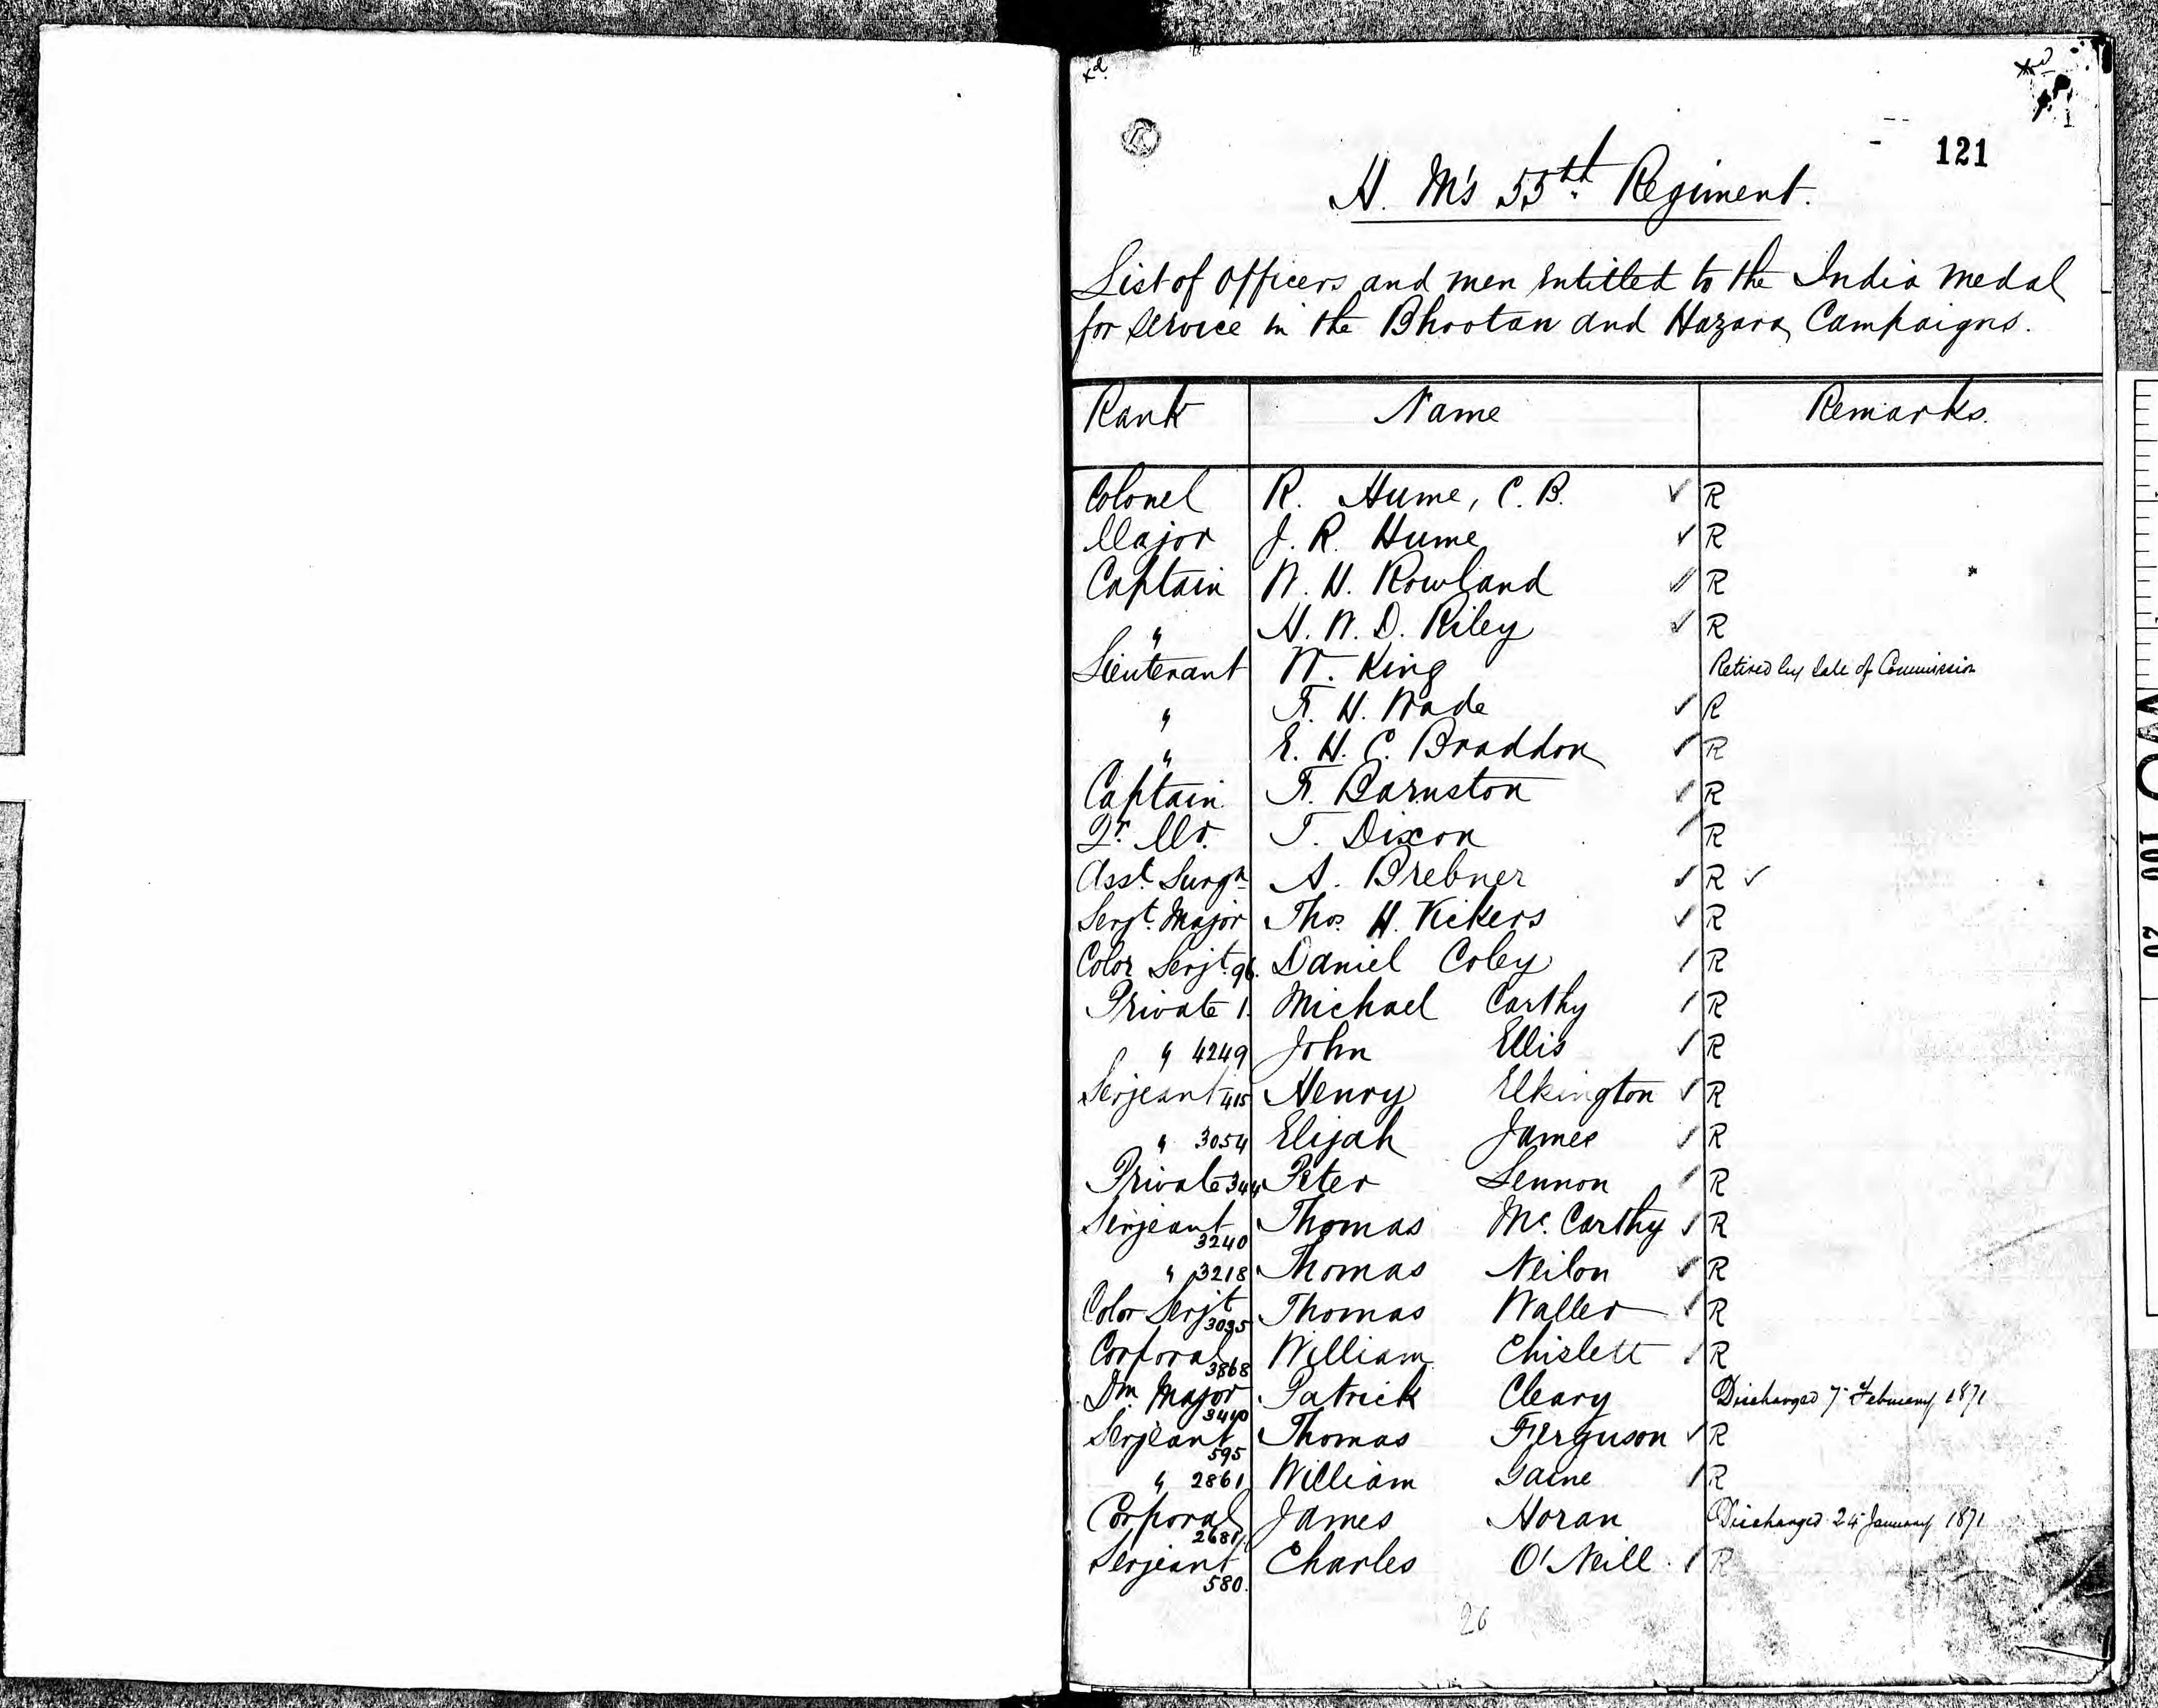 xd
121
H. M's 55th Regiment.
List of Officers and men entitled to the India Medal
for service in the Bhootan and Hazara Campaigns.
Rank Name Remarks.
Colonel R. Hume, C. B. ✓ R
Major J. R. Hume ✓ R
Captain W. H. Rowland ✓ R
" H. W. D. Riley ✓ R
Lieutenant W. King Retired by Sale of Commission
" F. H. Wade ✓ R
" E. H. C. Braddon ✓ R
Captain F. Barnston ✓ R
Qr. Mr. T. Dixon ✓ R
Asst. Surgn A. Brebner ✓ R ✓
Serjt. Major Thos. H. Vickers ✓ R
Color Serjt. 96. Daniel Coley ✓ R
Private 1. Michael Carthy ✓ R
" 4249 John Ellis ✓ R
Serjeant 415 Henry Elkington ✓ R
" 3054 Elijah James ✓ R
Private 344 Peter Lennon ✓ R
Serjeant 3240 Thomas Mc. Carthy ✓ R
" 3218 Thomas Neilon ✓ R
Color Serjt 3035 Thomas Waller ✓ R
Corporal 3868 William Chislett ✓ R
Dm. Major 3440 Patrick Cleary Discharged 7 February 1871
Serjeant 595 Thomas Ferguson ✓ R
" 2861 William Gaine ✓ R
Corporal 2681 James Horan Discharged 24 January 1871
Serjeant 580. Charles O'Neill ✓ R
26